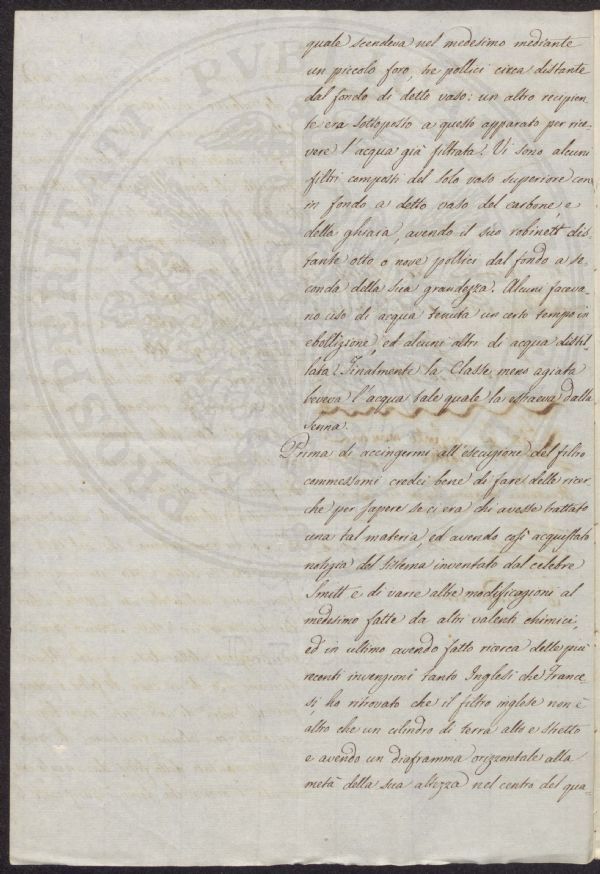 quale scendeva nel medesimo mediante
un piccolo foro, tre pollici circa distante
dal fondo di detto vaso: un altro recipien-
te era sottoposto a questo apparato per rice-
vere l'acqua già filtrata. Vi sono alcuni
filtri composti del solo vaso superiore con
in fondo a detto vaso del carbone, e
della ghiaia, avendo il suo robinett dis-
tante otto o nove pollici dal fondo a se-
conda della sua grandezza. Alcuni faceva-
no uso di acqua tenuta un certo tempo in
ebollizione, ed alcuni altri di acqua distil-
lata. Finalmente la Classe meno agiata
beveva l'acqua tale quale la estraeva dalla
Senna.
Prima di accingermi all'esecuzione del filtro
commessomi credei bene di fare delle ricer-
che per sapere se ci era chi avesse trattato
una tal materia, ed avendo così acquistato
notizia del sistema inventato dal celebre
Smitt e di varie altre modificazioni al
medesimo fatte da altri valenti chimici,
ed in ultimo avendo fatto ricerca delle più
recenti invenzioni tanto Inglesi che France-
si, ho ritrovato che il filtro inglese non è
altro che un cilindro di terra alto e stretto
e avendo un diaframma orizzontale alla
metà della sua altezza nel centro del qua-
PROSPERITATI PVB